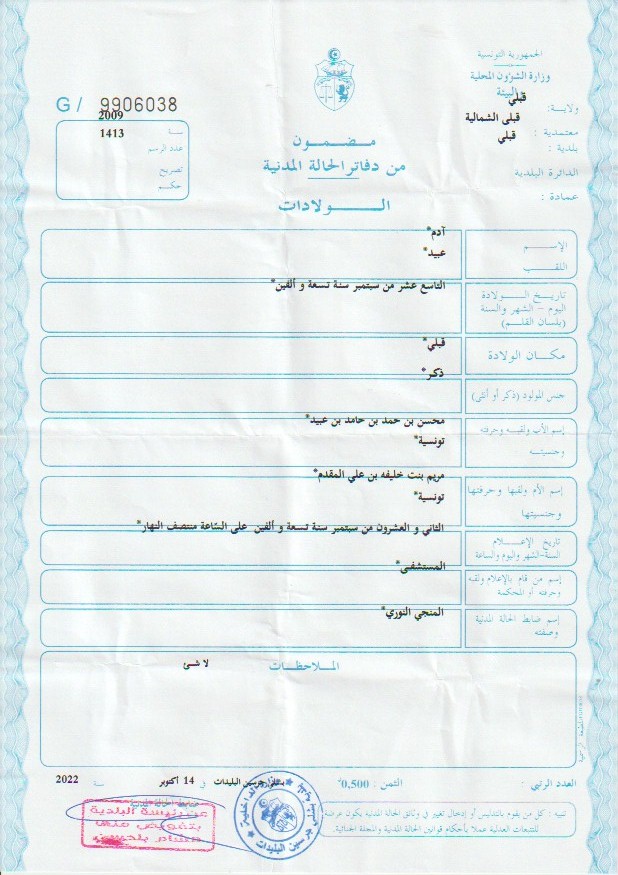 الجمهورية التونسية
وزارة الشؤون المحلية
والبيئة
ولايــة: قبلي
معتمدية : قبلى الشمالية
بلدية : قبلي
الدائرة البلدية
عمادة :
G / 9906038
سنة 2009
عدد الرسم 1413
تصريح
حكم
مضمــون
من دفاتر الحالة المدنية
الــولادات
الإســم آدم*
اللقب عبيد*
تاريخ الــولادة
اليوم - الشهر والسنة
(بلسان القلم)
التاسع عشر من سبتمبر سنة تسعة و ألفين*
مكــان الولادة قبلي*
جنس المولود (ذكر أو أنثى) ذكر*
إسم الأب ولقبــه وحرفته محسن بن حمد بن حامد بن عبيد*
وجنسيتــه تونسية*
إسم الأم ولقبها وحرفتها مريم بنت خليفه بن علي المقدم*
وجنسيتها تونسية*
تاريخ الإعــلام
السنة-الشهر واليوم والساعة
الثاني و العشرون من سبتمبر سنة تسعة و ألفين على السّاعة منتصف النهار*
إسم من قام بالإعلام ولقبه
وحرفته أو المحكمة
المستشفى*
إسم ضابط الحالة المدنية
وصفته
المنجي النوري*
الملاحظــات
لا شئ
العدد الرتبي : الثمن : 0,500 جرسين البليدات في 14 أكتوبر سنة 2022
ضابط الحالة المدنية
عن رئيسة البلدية
بتفويض منها
تنبيه : كل من يقوم بالتدليس أو إدخال تغيير في وثائق الحالة المدنية يكون عرضة
للتتبعات العدلية عملا بأحكام قوانين الحالة المدنية والمجلة الجنائية.